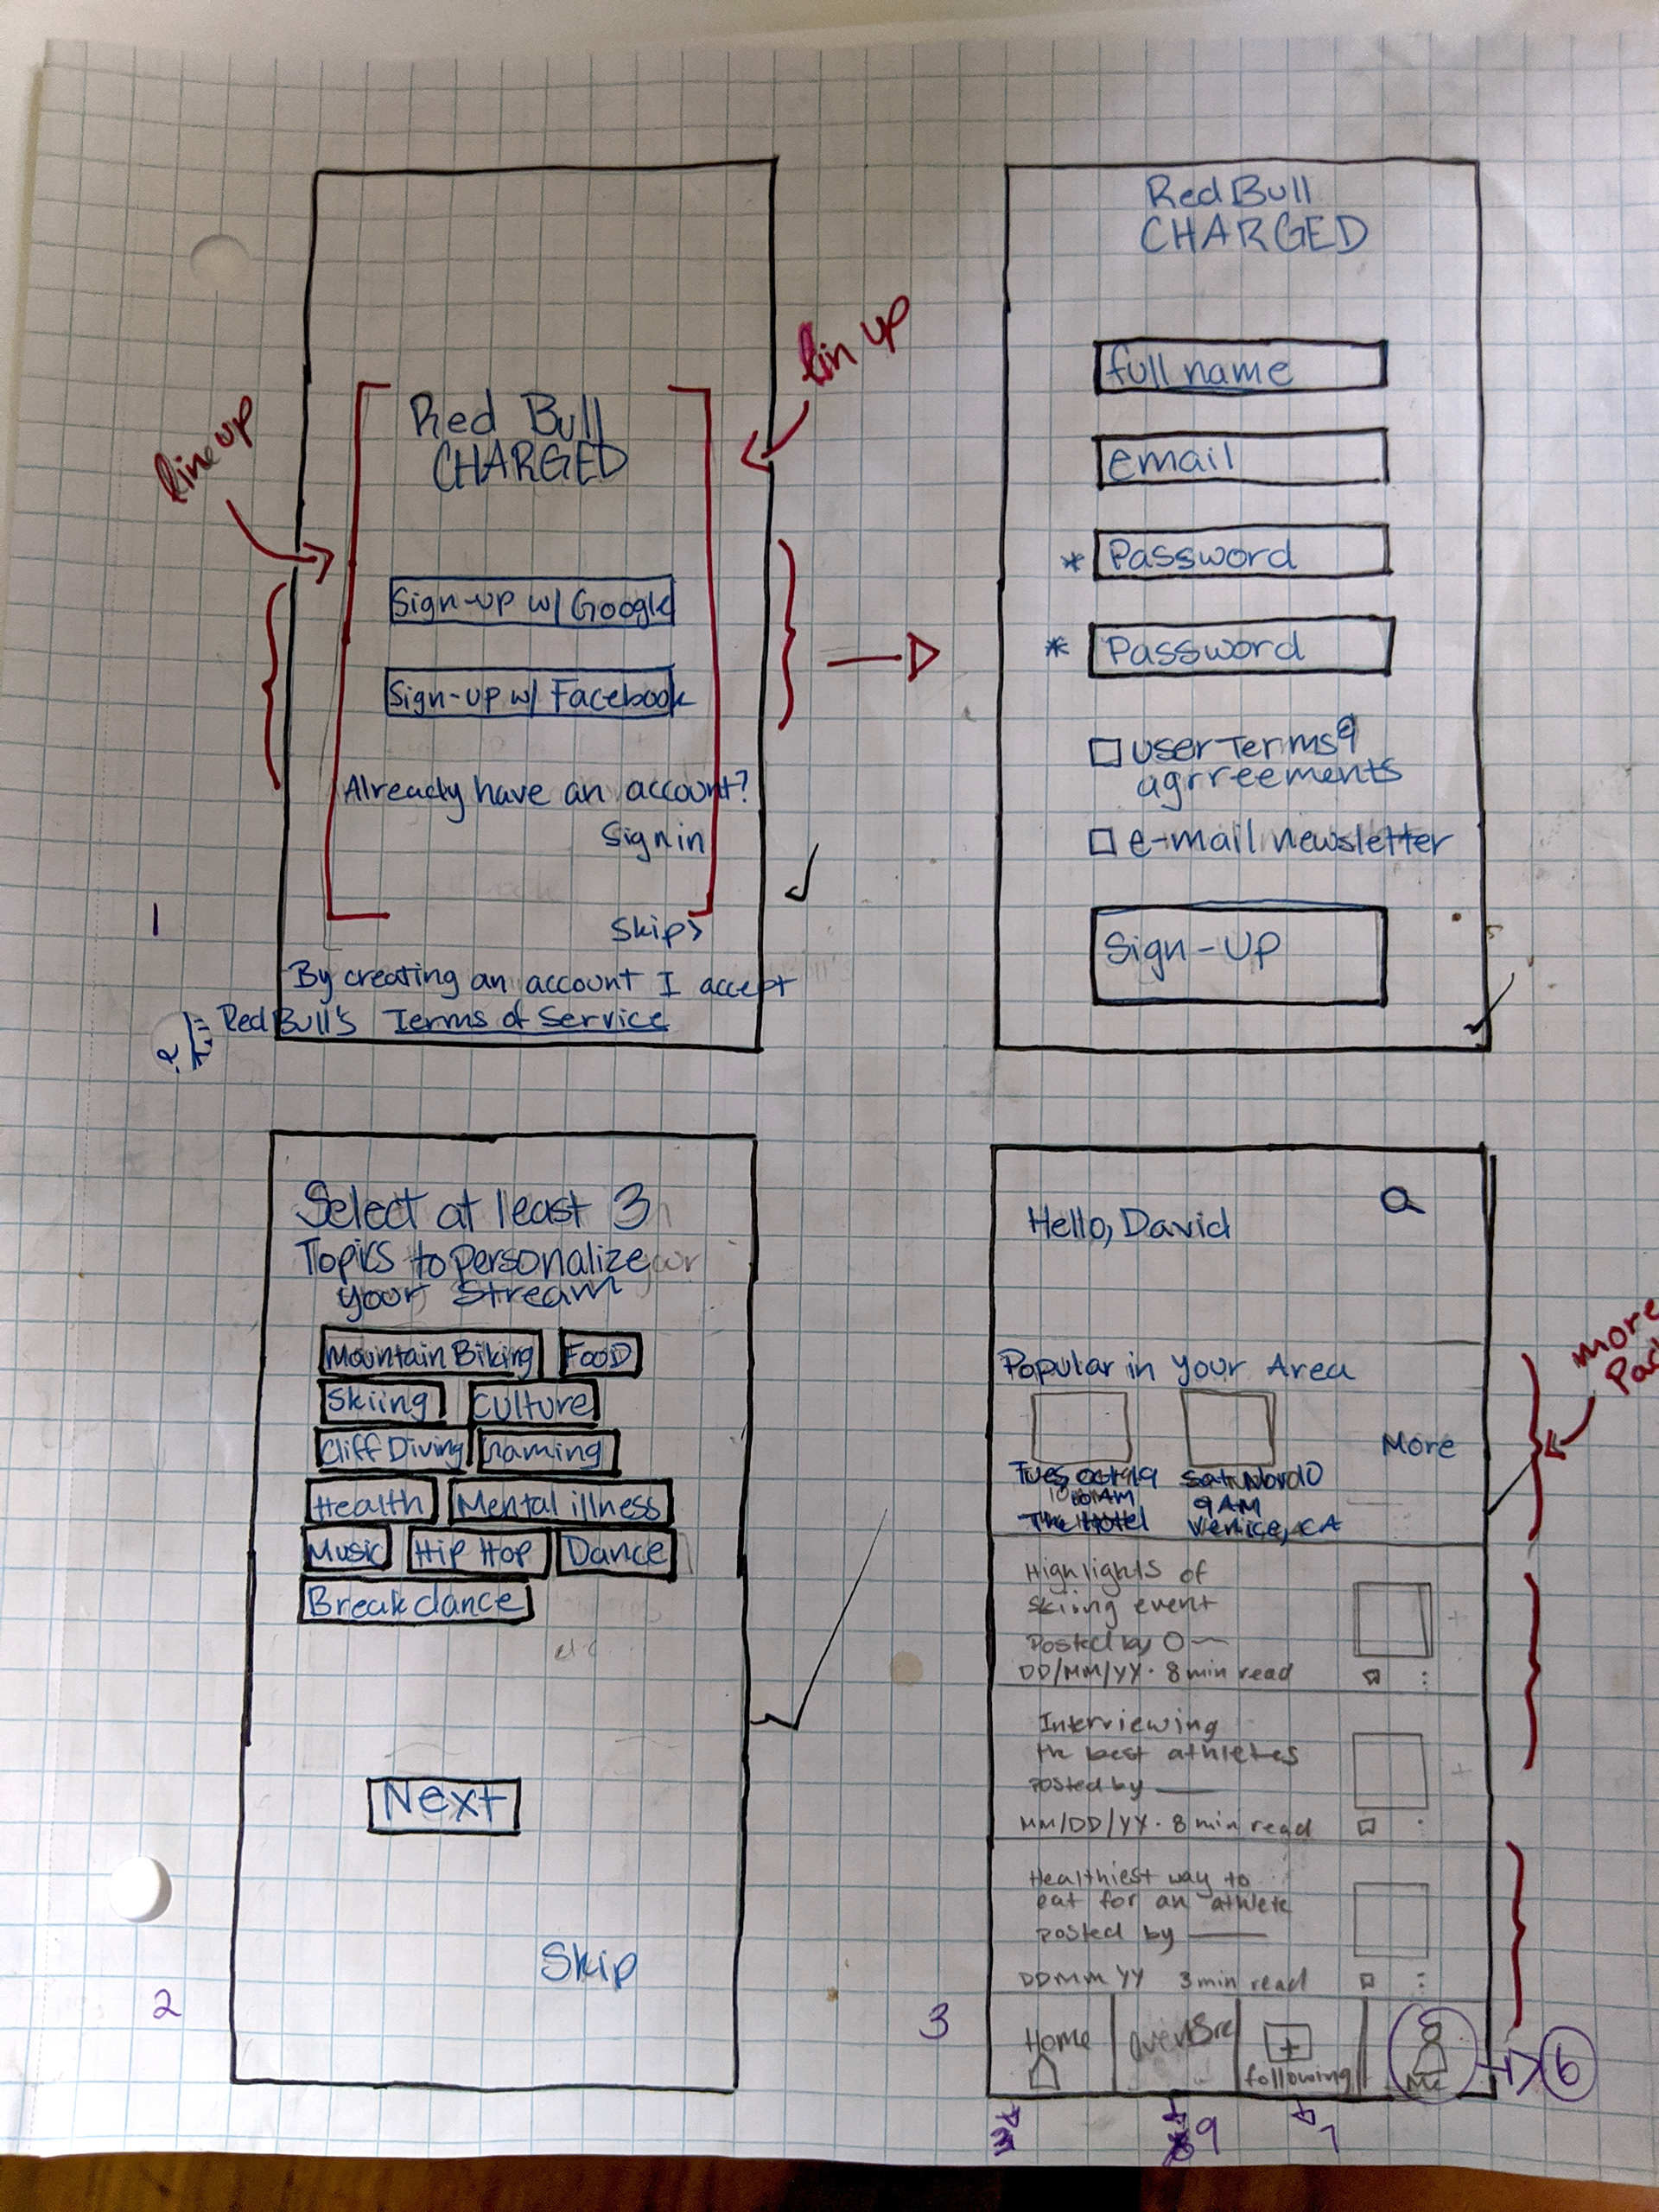 Red Bull
CHARGED
line up
lin up
Sign-up w/ Google
Sign-up w/ Facebook
Already have an account?
Sign in
Skip>
By creating an account I accept
Red Bull's Terms of Service
?
1
Red Bull
CHARGED
full name
email
* Password
* Password
user Terms &
agrreements
e-mail newsletter
Sign-Up
Select at least 3
Topics to personalize
your Stream
Mountain Biking
Food
Skiing
Culture
Cliff Diving
Gaming
Health
Mental illness
Music
Hip Hop
Dance
Breakdance
etc...
Next
Skip
2
Hello, David
Popular in your Area
More
more
Tues Oct 19
10AM
The Hotel
Sat Nov 10
9AM
Venice, CA
Highlights of
skiing event
Posted by
DD/MM/YY · 8 min read
Interviewing
the best athletes
posted by
MM/DD/YY · 8 min read
Healthiest way to
eat for an athlete
posted by
DDMMYY 3 min read
Home
following
Me
6
3
3
9
7